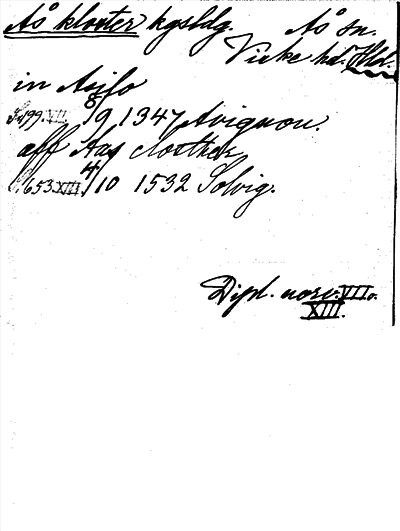 Ås kloster kgsldg. Ås sn.
Viske hd. Hld.
in Asflo
S. 199. VII. 8/9 1347 Avignon.
aff Aas closther
S. 653 XIII. 4/10 1532 Solvig.
Dipl. norv. VII o.
XIII.